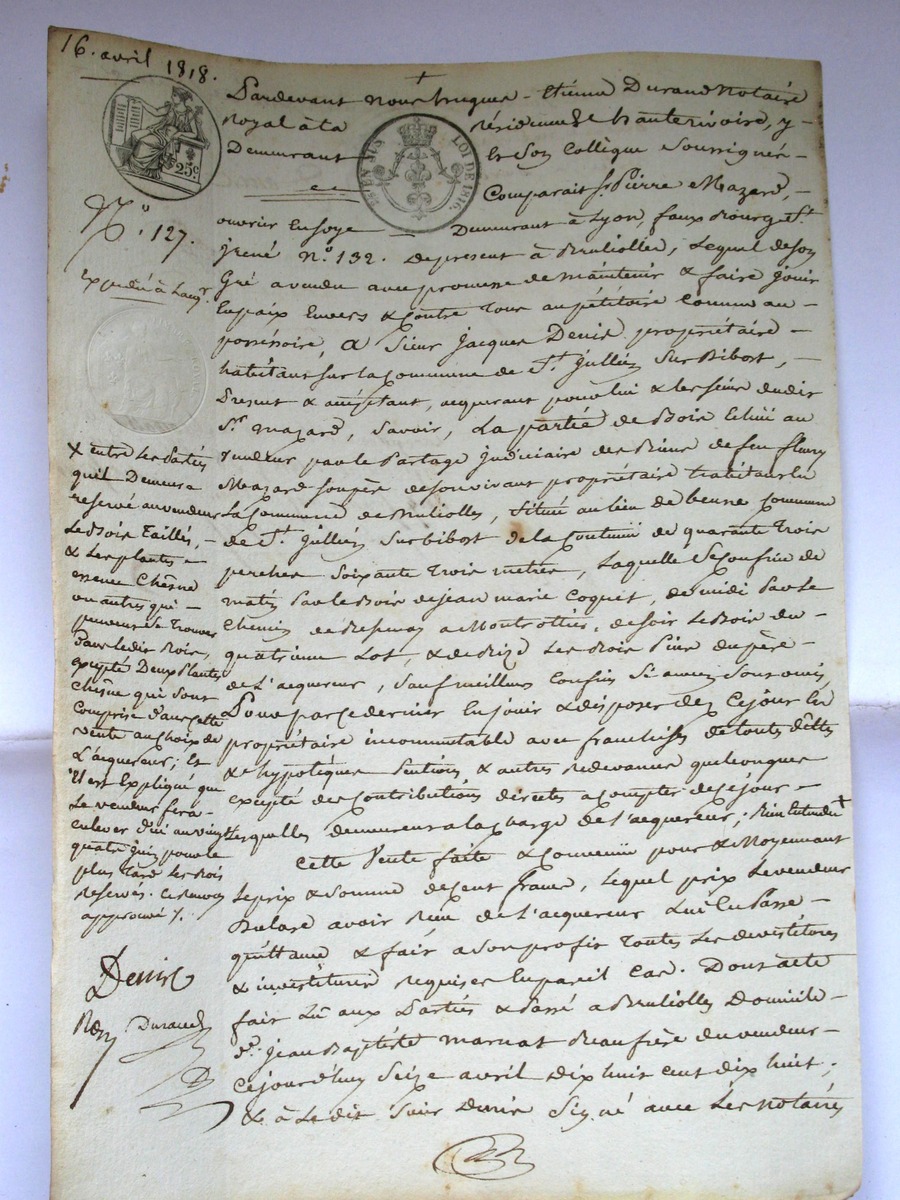 16. avril 1818.
Pardevant nous hugues - Etienne Durand Notaire
Royal à la résidence de hauterivoire, y -
Demeurant & Son Collègue Soussignés -
Comparait Sr. Pierre Mazard, -
25c
LOI DE 1816.
N.o 127.
Expédié à l'acqr.
ouvrier En Soye Demeurant à Lyon, faux Bourg St.
jrené N.o 132. De present à Brullioles, Lequel de Son
Gré a vendu avec promesse de maintenir & faire jouir
En paix Envers & Contre Tous au pétitoire Comme au -
possessoire, a Sieur Jacques Denis propriétaire -
habitant sur la Commune de St. Jullien Sur Bibost, -
Present & acceptant, acquerant pour lui & les siens dudit
Sr. mazard, Savoir, La partie de Bois Echüe au
vendeur par le Partage judiciaire des Biens de feu fleury
Mazard son père de son vivant propriétaire habitant En
La Commune de Brulliolles, Située au lieu de Commune
de St. Jullien Sur bibost de la Contenue de quarante Trois
perches Soixante Trois mètres, Laquelle Se Confine de
matin Par le Bois de jean marie Coquet, de midi Par le
Chemin de a Montrottier, de soir Le Bois du -
quatrième Lot, & de Bize Les Bois Pins du père -
de L'acquereur, Sauf meilleurs Confins Si aucuns Sont omis,
Pour par Ce dernier En jouir & disposer dez Ce jour En
propriétaire incommutable avec franchises de touts dettes
& hypotèques Servies, & autres Redevances quelconques
excepté des Contributions directes a Compter de Ce jour -
Lesquelles demeurent a la charge de l'acquereur; Bien Entendu +
Cette Vente faite & Convenüe pour & Moyennant
Le prix & Somme de Cent francs, Lequel prix Le vendeur
Declare avoir Reçu de L'acquereur Lui En Passe -
quittance & fait a Son profit Toutes Les devestitures
& investitures requises En pareil Cas. Dont acte
fait Lû aux Parties & Passé a Brulliolles Domicile -
de jean Baptiste marnat Beaufrère du vendeur -
Cejourd'huy Seize avril Dix huit Cent dix huit;
& à Le dit Sieur Denis Signé avec Les Notaires
+ entre Les Parties
qu'il Demeure
reservé au vendeur
Le Bois Taillés, -
& Les plantes -
essence Chêsne
ou autres qui -
peuvent Se Trouver
Dans Ledit Bois,
excepté Deux Plantes
Chêsne qui Sont
Comprises dans Cette
vente au Choix de
L'acquereur; Et
il est Expliqué que
Le vendeur fera -
enlever d'ici au vingt
quatre juin pour le
plus Tard Les Bois
Reservés. Ce Renvoy
approuvé /.
Denis
Durand